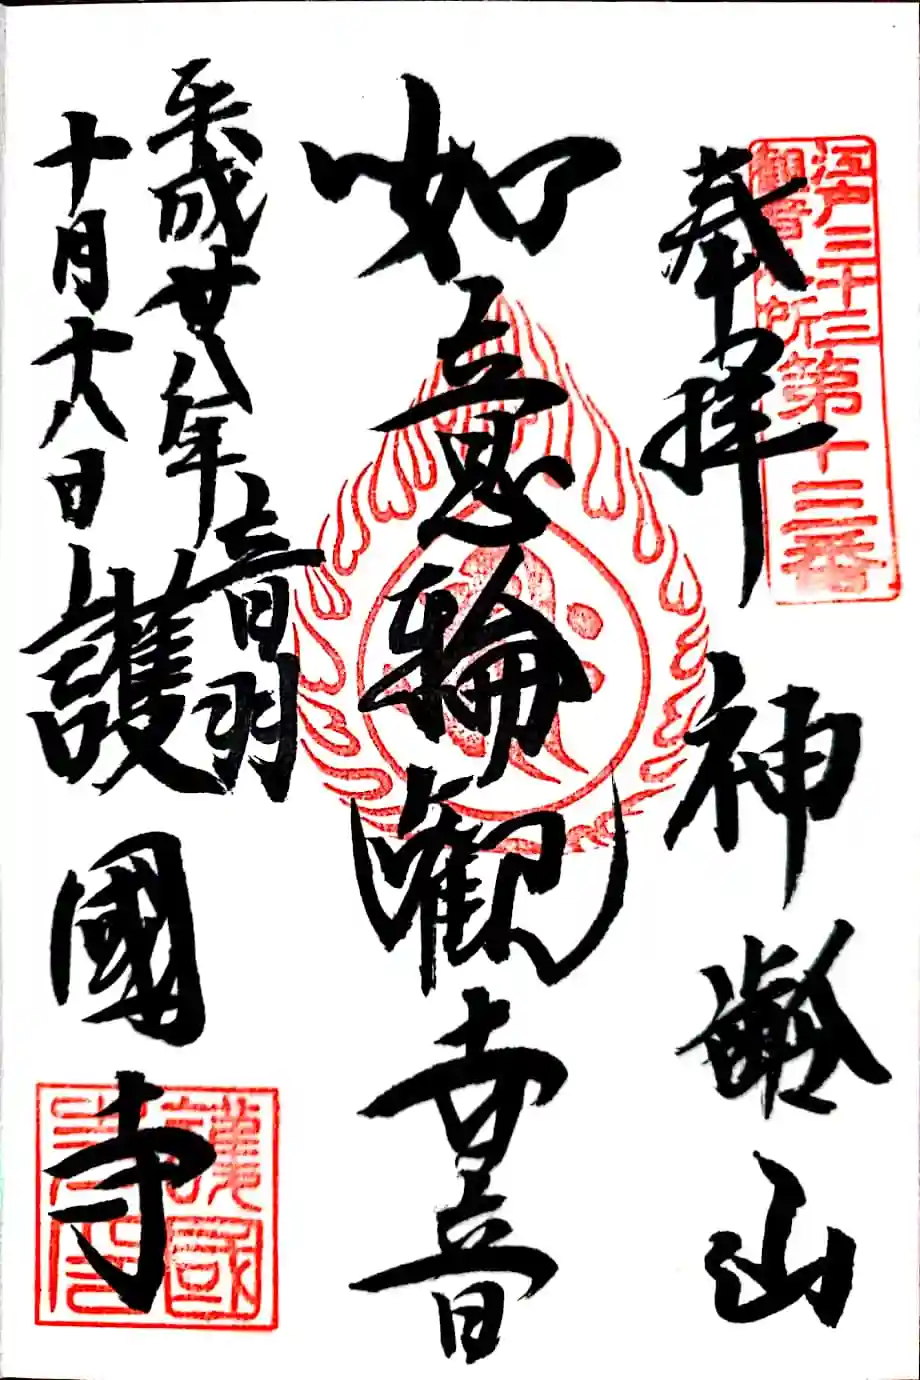 江戸三十三
観音札所第十三番
奉拝
神齢山
如意輪観音
平成廿八年
十月十八日
音羽
護國寺
護國